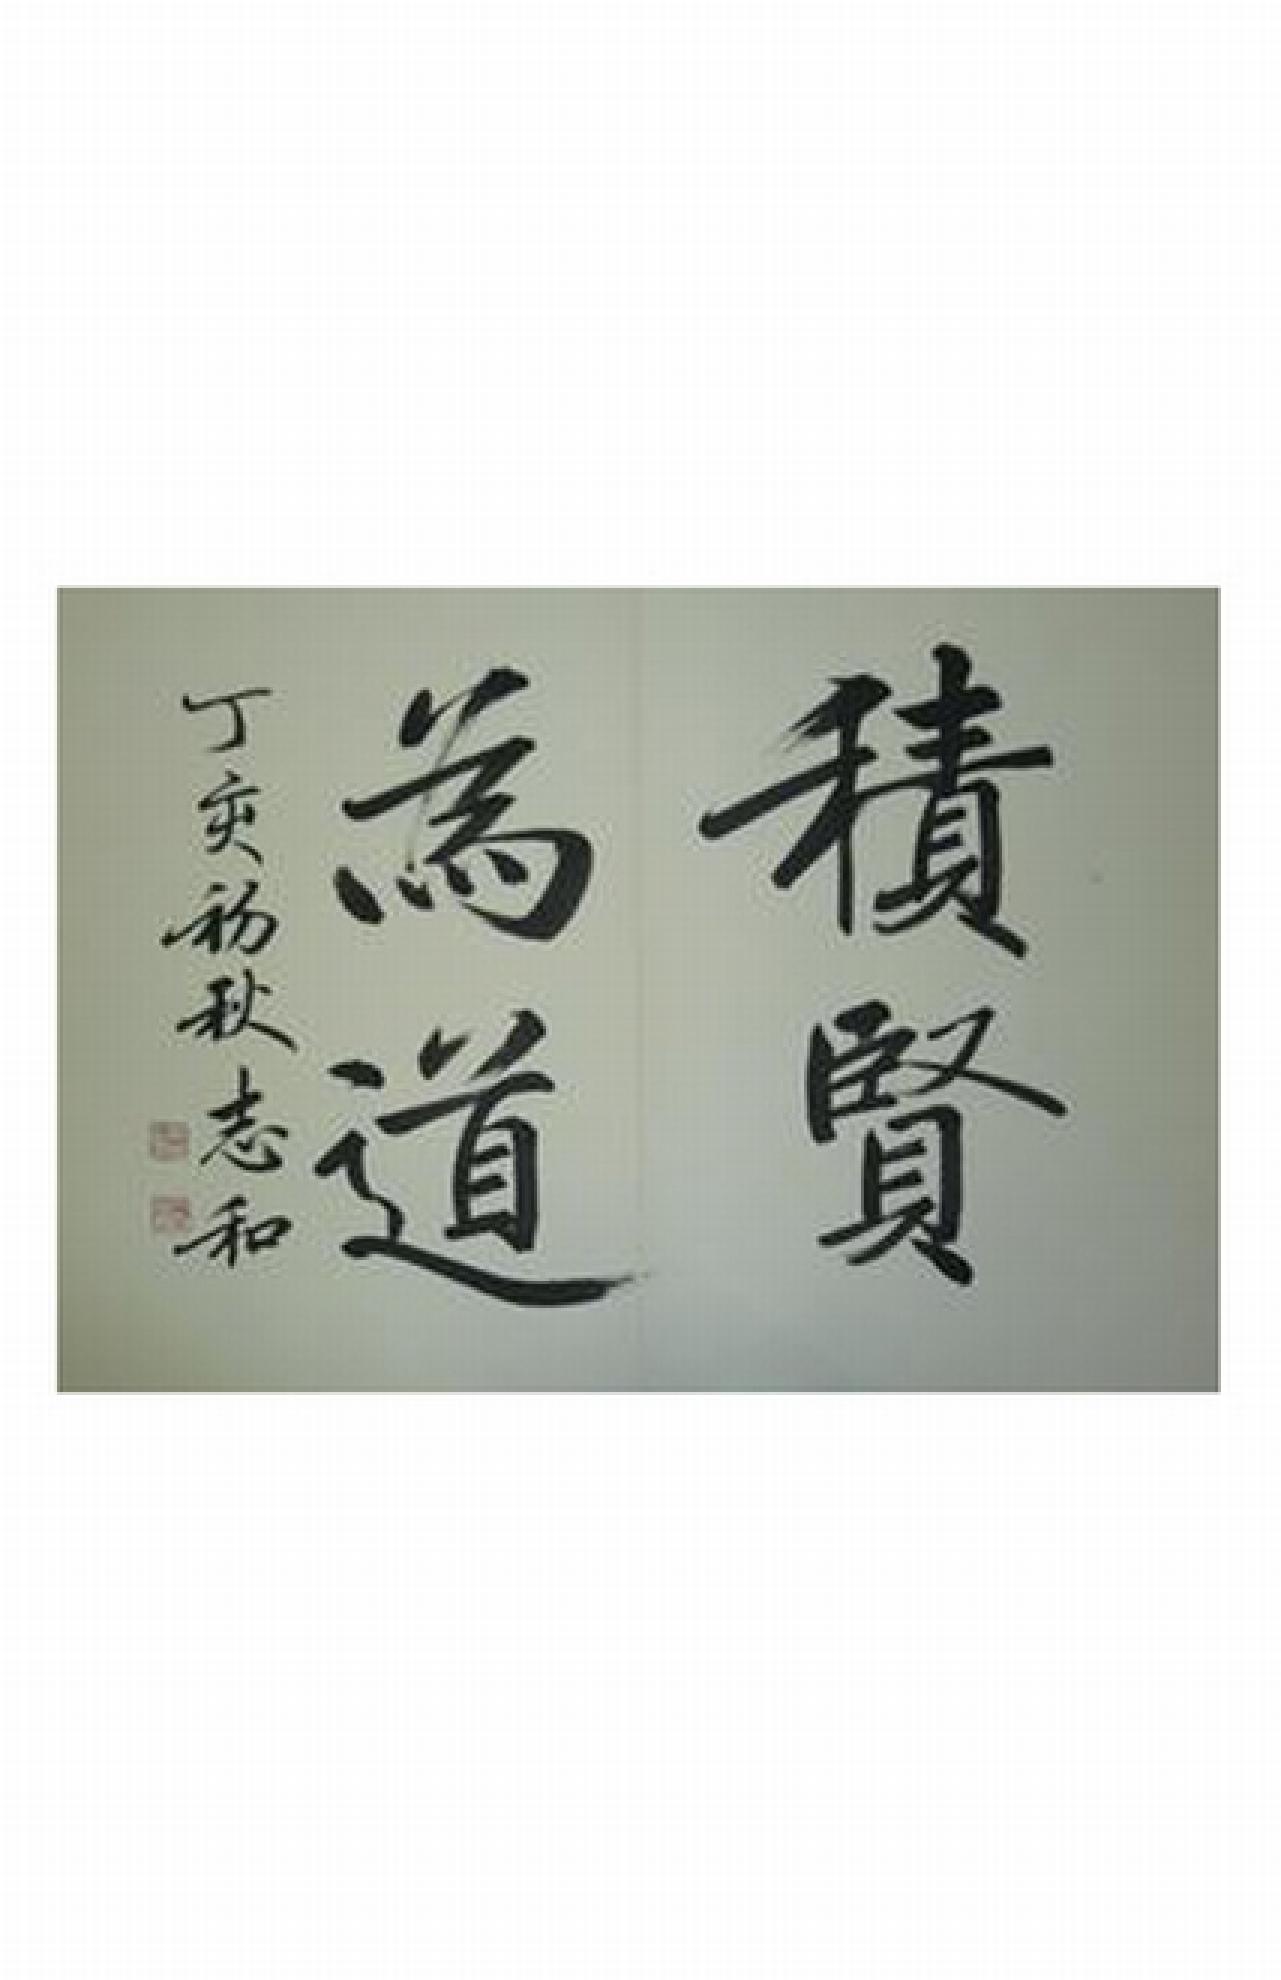 積賢
為道
丁亥初秋志和